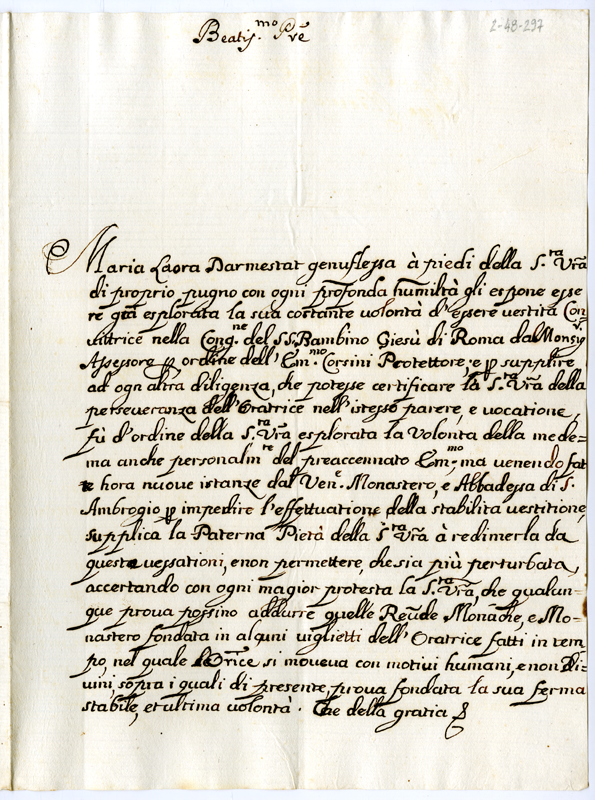 2-48-297
Beatis.mo Pre
Maria Laora Darmestat genuflessa à piedi della S.ta Vrã
di proprio pugno con ogni profonda humiltà gli espone esse
re già esplorata la sua costante volontà d'essere vestita Con
vittrice nella Cong.ne del SS. Bambino Giesù di Roma dal Monsig.r
Assessore p ordine dell'Em.mo Corsini Protettore; e p supplire
ad ogn altra diligenza, che potesse certificare la S.ta Vrã della
perseveranza dell'Oratrice nell'istesso parere, e vocatione,
fù d'ordine della S.ta Vrã esplorata la volontà della mede=
ma anche personalm.te del preaccennato Em.mo ma venendo fat
te hora nuove istanze dal Ven. Monastero, e Abbadessa di S.
Ambrogio p impedire l'effettuatione della stabilita vestitione,
supplica la Paterna Pietà della S.ta Vrã à redimerla da
queste vessationi, e non permettere, che sia più perturbata,
accertando con ogni magior protesta la S.ta Vrã, che qualun-
que prova possino addurre quelle Reu̅de Monache, e Mo-
nastero fondata in alcuni viglietti dell'Oratrice fatti in tem
po, nel quale l'Or̅ice si moveva con motivi humani, e non di-
vini, sopra i quali di presente, prova fondata la sua ferma
stabile, et ultima volontà. Che della gratia &